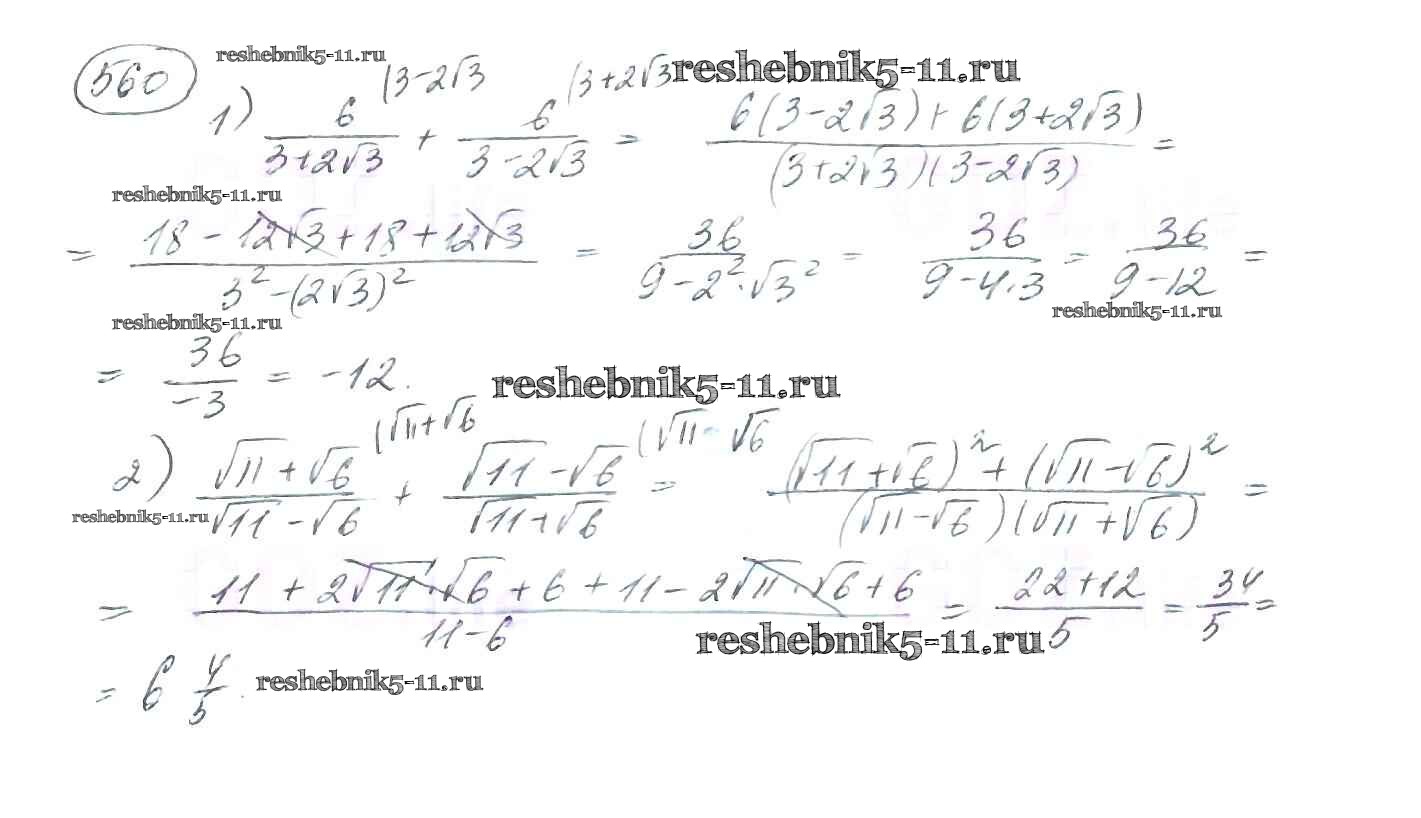 560 reshebnik5-11.ru
1) 6/(3+2√3) (3-2√3 + 6/(3-2√3) (3+2√3 = (6(3-2√3)+6(3+2√3))/((3+2√3)(3-2√3)) =
reshebnik5-11.ru
reshebnik5-11.ru
= (18-12√3+18+12√3)/(3²-(2√3)²) = 36/(9-2²·√3²) = 36/(9-4·3) = 36/(9-12) =
reshebnik5-11.ru
reshebnik5-11.ru
= 36/-3 = -12.
reshebnik5-11.ru
2) (√11+√6)/(√11-√6) (√11+√6 + (√11-√6)/(√11+√6) (√11-√6 = ((√11+√6)²+(√11-√6)²)/((√11-√6)(√11+√6)) =
reshebnik5-11.ru
= (11+2√11·√6+6+11-2√11·√6+6)/(11-6) = (22+12)/5 = 34/5 =
reshebnik5-11.ru
= 6 4/5. reshebnik5-11.ru